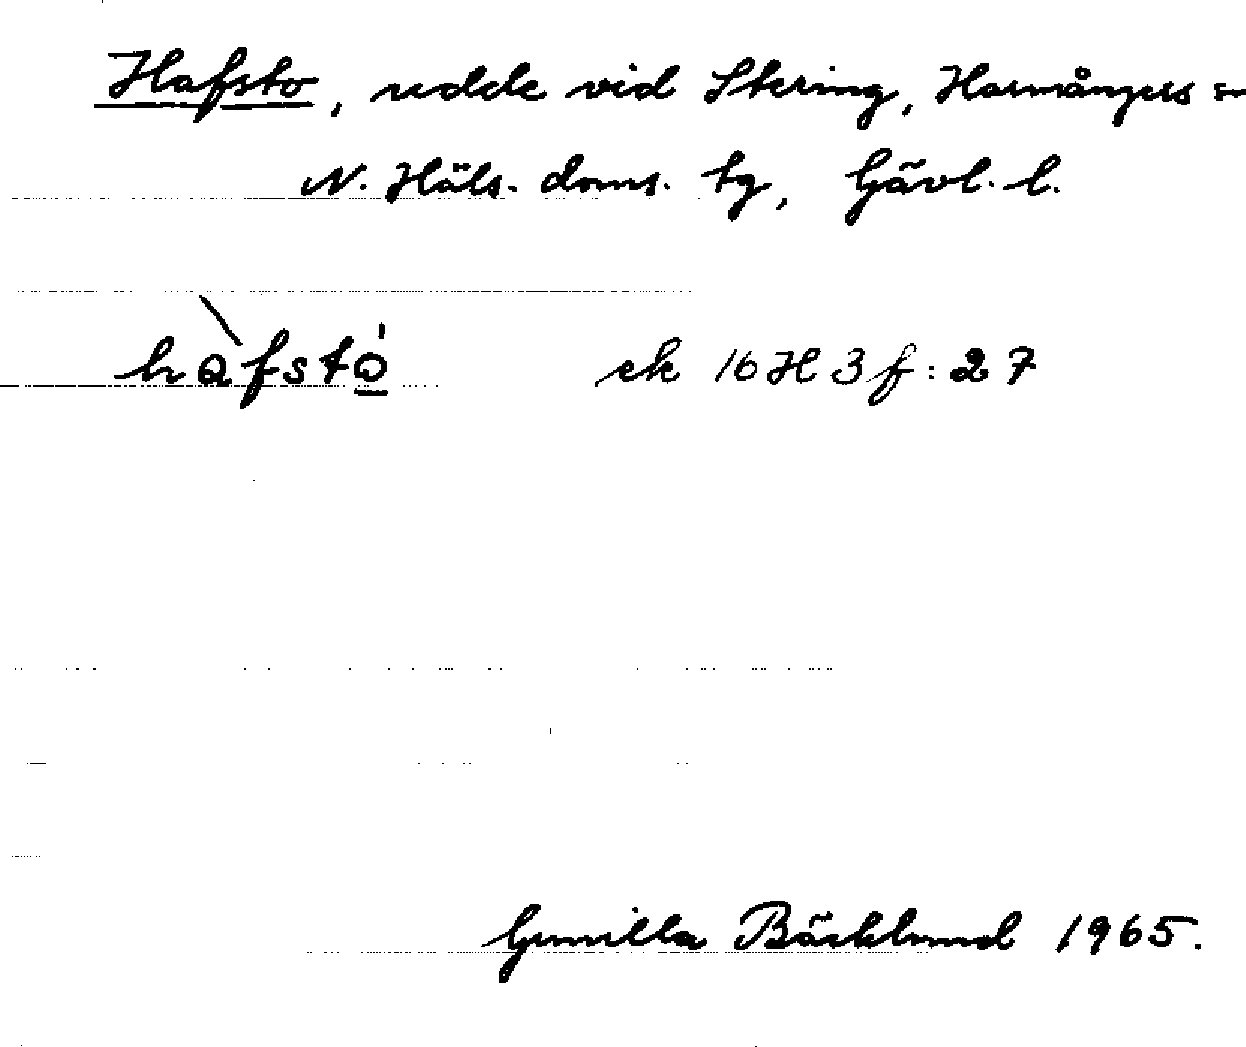 Hafsto, udde vid Stering, Harmångers sn
N. Häls. doms. tg, Gävl. l.
hàfstò̲ ek 16H3f:27
Gunilla Bäcklund 1965.